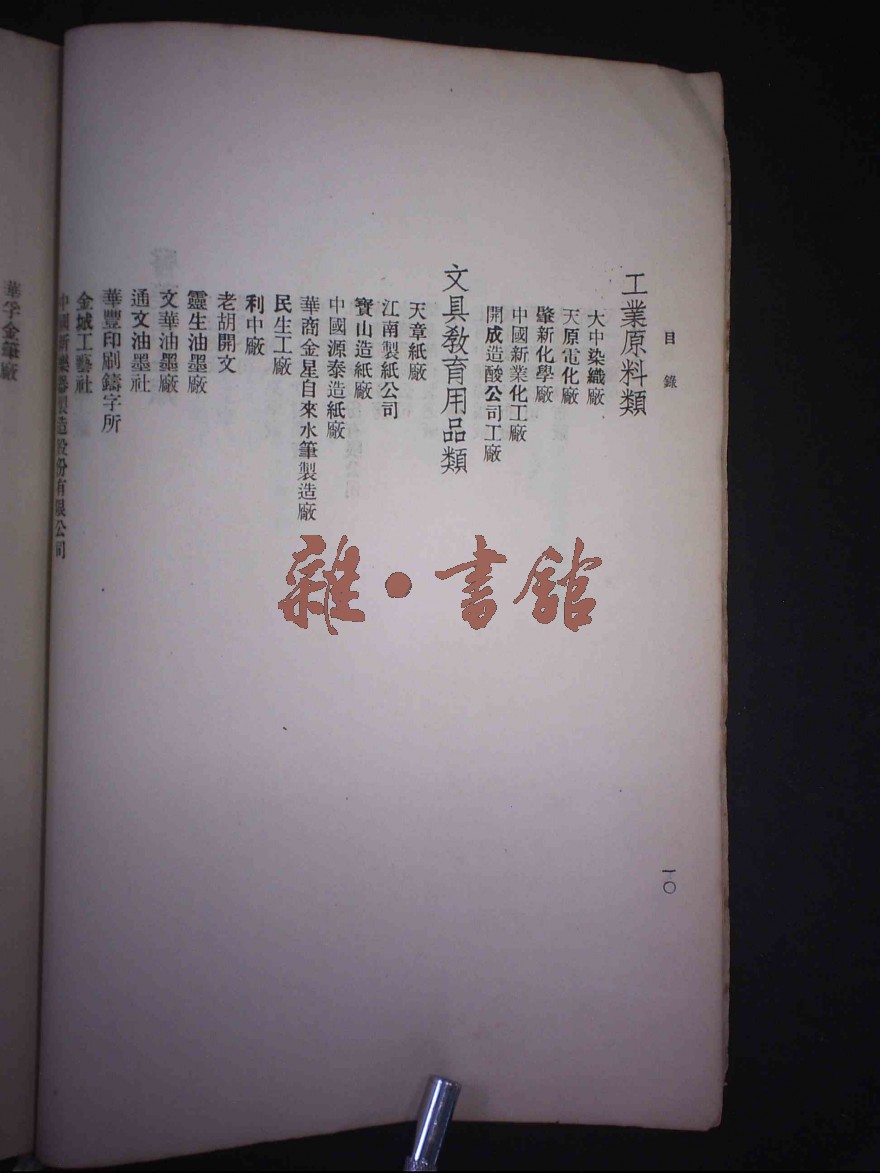 目錄
工業原料類
大中染織廠
天原電化廠
肇新化學廠
中國新業化工廠
開成造酸公司工廠
文具教育用品類
天章紙廠
江南製紙公司
寶山造紙廠
中國源泰造紙廠
華商金星自來水筆製造廠
民生工廠
利中廠
老胡開文
靈生油墨廠
文華油墨廠
通文油墨社
華豐印刷鑄字所
金城工藝社
中國新樂器製造股份有限公司
一〇
華孚金筆廠
雜·書館